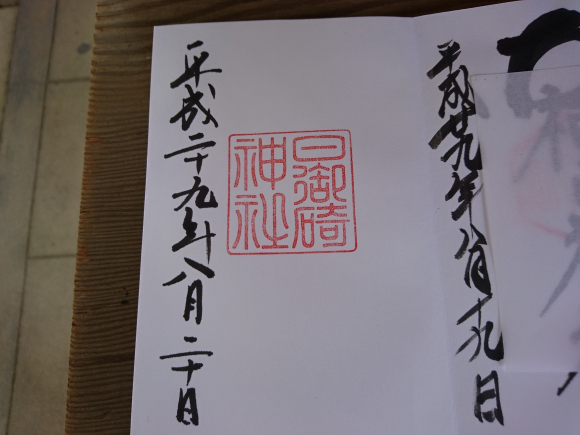 平成廿九年八月十九日
日御碕
神社
平成二十九年八月二十日